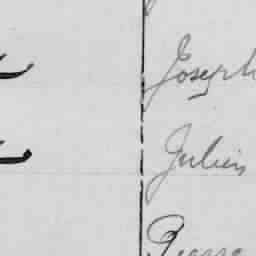 Joseph
Julien
Pierre